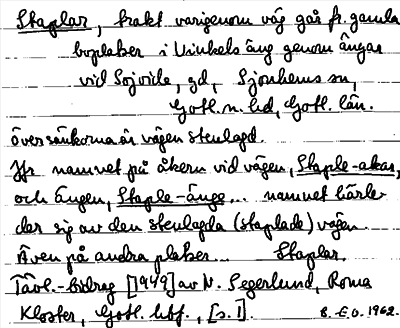 Staplar, trakt varigenom väg går fr. gamla
boplatser i Vinkels äng genom Ängar
vid Sojvide, gd, Sjonhems sn,
Gotl. n. hd, Gotl. län.
över sänkorna är vägen stenlagd.
Jfr namnet på åkern vid vägen, Staple-akar,
och ängen, Staple-änge... namnet härle-
der sig av den stenlagda (staplade) vägen.
Även på andra platser... Staplar.
Tävl.-bidrag [1949] av N. Segerlund, Roma
Kloster, Gotl. hbf., [s. 1]. B. E-O. 1962.